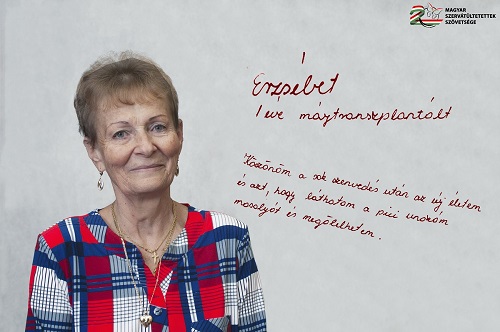 MAGYAR
SZERVÁTÜLTETETTEK
SZÖVETSÉGE
Erzsébet
1 éve májtranszplantált
Köszönöm a sok szenvedés után az új életem
és azt, hogy láthatom a pici unokám
mosolyát és megölelhetem.